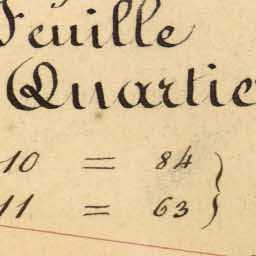 Feuille
Quartie
10 = 84
11 = 63